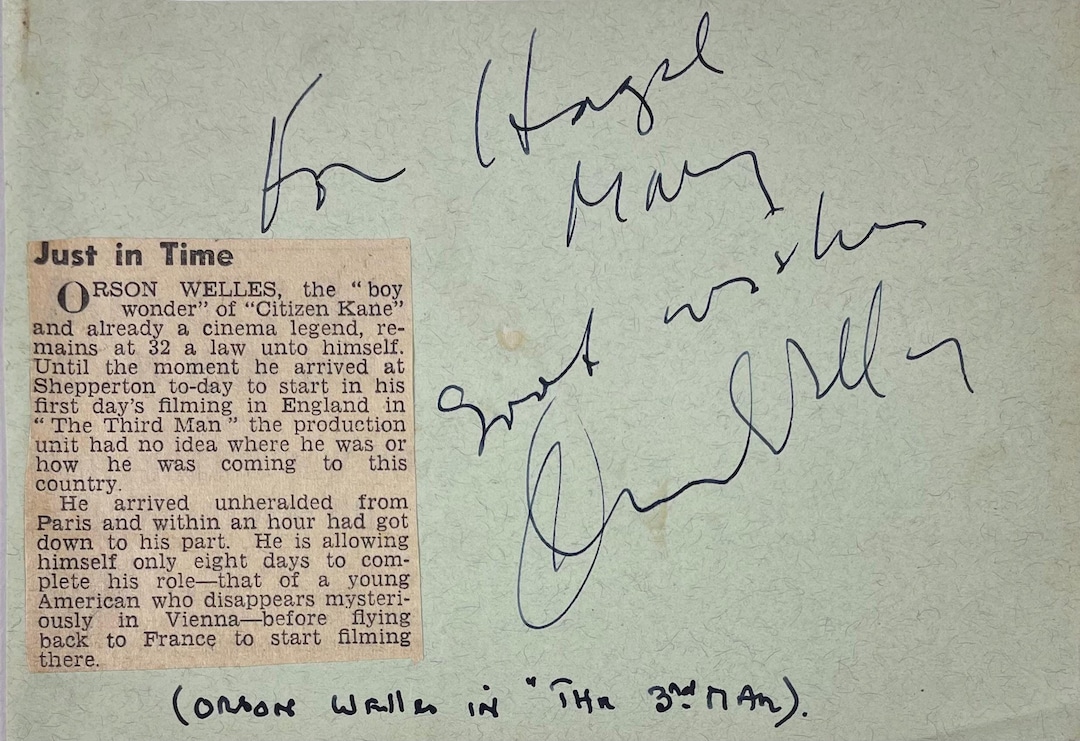 For Hazel
Mary
Great wishes
Orson Welles
Just in Time
ORSON WELLES, the "boy
wonder" of "Citizen Kane"
and already a cinema legend, re-
mains at 32 a law unto himself.
Until the moment he arrived at
Shepperton to-day to start in his
first day's filming in England in
"The Third Man" the production
unit had no idea where he was or
how he was coming to this
country.
He arrived unheralded from
Paris and within an hour had got
down to his part. He is allowing
himself only eight days to com-
plete his role—that of a young
American who disappears mysteri-
ously in Vienna—before flying
back to France to start filming
there.
(ORSON WELLES in "THE 3rd MAN).